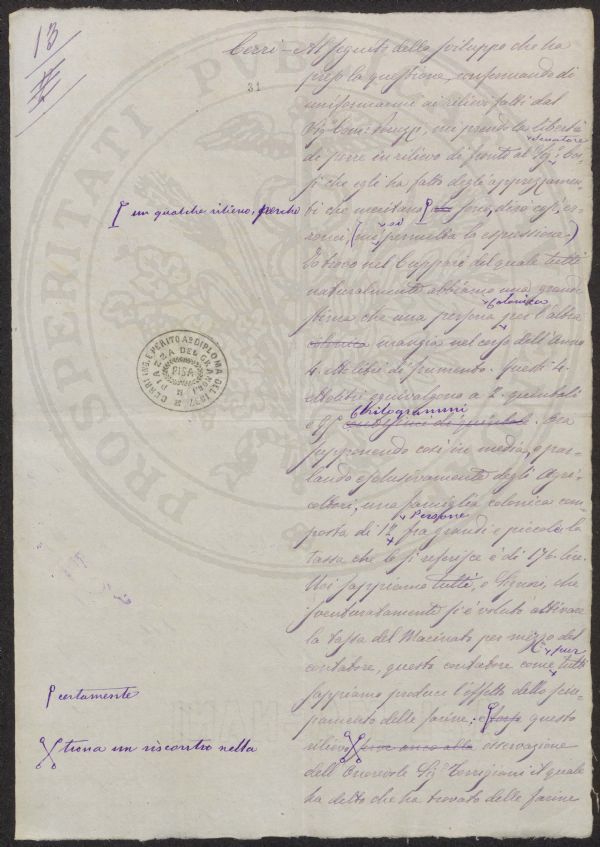 13
Cerri - Al seguito dello sviluppo che ha
31
preso la questione, confermando di
uniformarmi ai rilievi fatti dal
Sig. Conte mi prendo la libertà
Senatore
di porre in rilievo di fronte al Sig.
che egli ha fatto degli apprezzamen-
un qualche rilievo, perchè
ti che meritano sono, dirò così, er-
ronei, (mi si permetta la espressione)
Io trovo nel rapporto del quale tutti
naturalmente abbiamo una grande
colonica
stima che una persona per l'altra
mangia nel corso dell'anno
4. ettolitri di frumento. Questi 4.
ettolitri equivalgono a 2. quintali
Kilogrammi
e
supponendo così in media, e par-
lando esclusivamente degli Agri-
coltori, una famiglia colonica com-
Persone
posta di 12 fra grandi e piccole la
tassa che le si referisce è di 176. lire.
Noi sappiamo tutti, o Signori, che
sventuratamente si è voluto attivare
la tassa del Macinato per mezzo del
pur
contatore, questo contatore come tutti
certamente
sappiamo produce l'effetto dello sciu-
pamento delle farine; e forse questo
trova un riscontro nella
rilievo forse anco alla osservazione
dell'Onorevole Sig. Torrigiani il quale
ha detto che ha trovato delle farine
CERRI ING. E PERITO AG. DIPLOMA DEL 1877
PIAZZA DEL GRANO N. 11
PISA
PROSPERITATI PUBLICAE